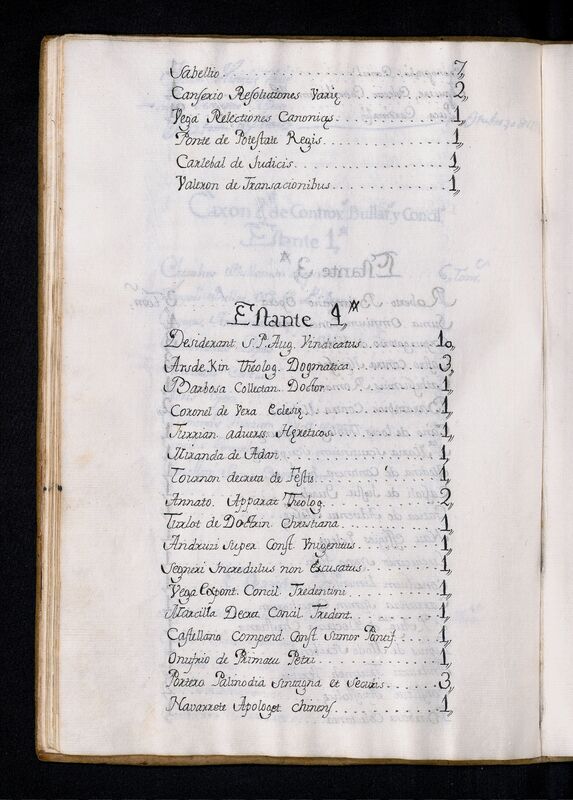 Sabellio 7,,
Canserio Resolutiones Varię 2,,
Vega Relectiones Canonicas 1,,
Ponte de Potestate Regis 1,,
Carlebal de Judicis 1,,
Valeron de Transacionibus 1,,
Estante 4ª
Desiderant S. P. Aug. Vindicatus 1,,
Ansdekin Theolog. Dogmatica 3,,
Barbosa Collectan. Doctor 1,,
Coronel de Vera Eclesię 1,,
Turrian adverss. Hęreticos 1,,
Miranda de Adan 1,,
Tournon decreta de Festis 1,,
Annato. Apparat Theolog. 2,,
Turlot de Doctrin Christiana 1,,
Andruzi Super Const. Vnigenitus 1,,
Segneri Incredulus non Excusatus 1,,
Vega Expont. Concil. Tredentini 1,,
Marcilla Decret. Concil. Tredent. 1,,
Castellano Compend. Const. Sumor Pontif. 1,,
Onufrio de Primatu Petri 1,,
Portero Palinodia sintagna et Securis 3,,
Navarrete Apologet chinens. 1,,